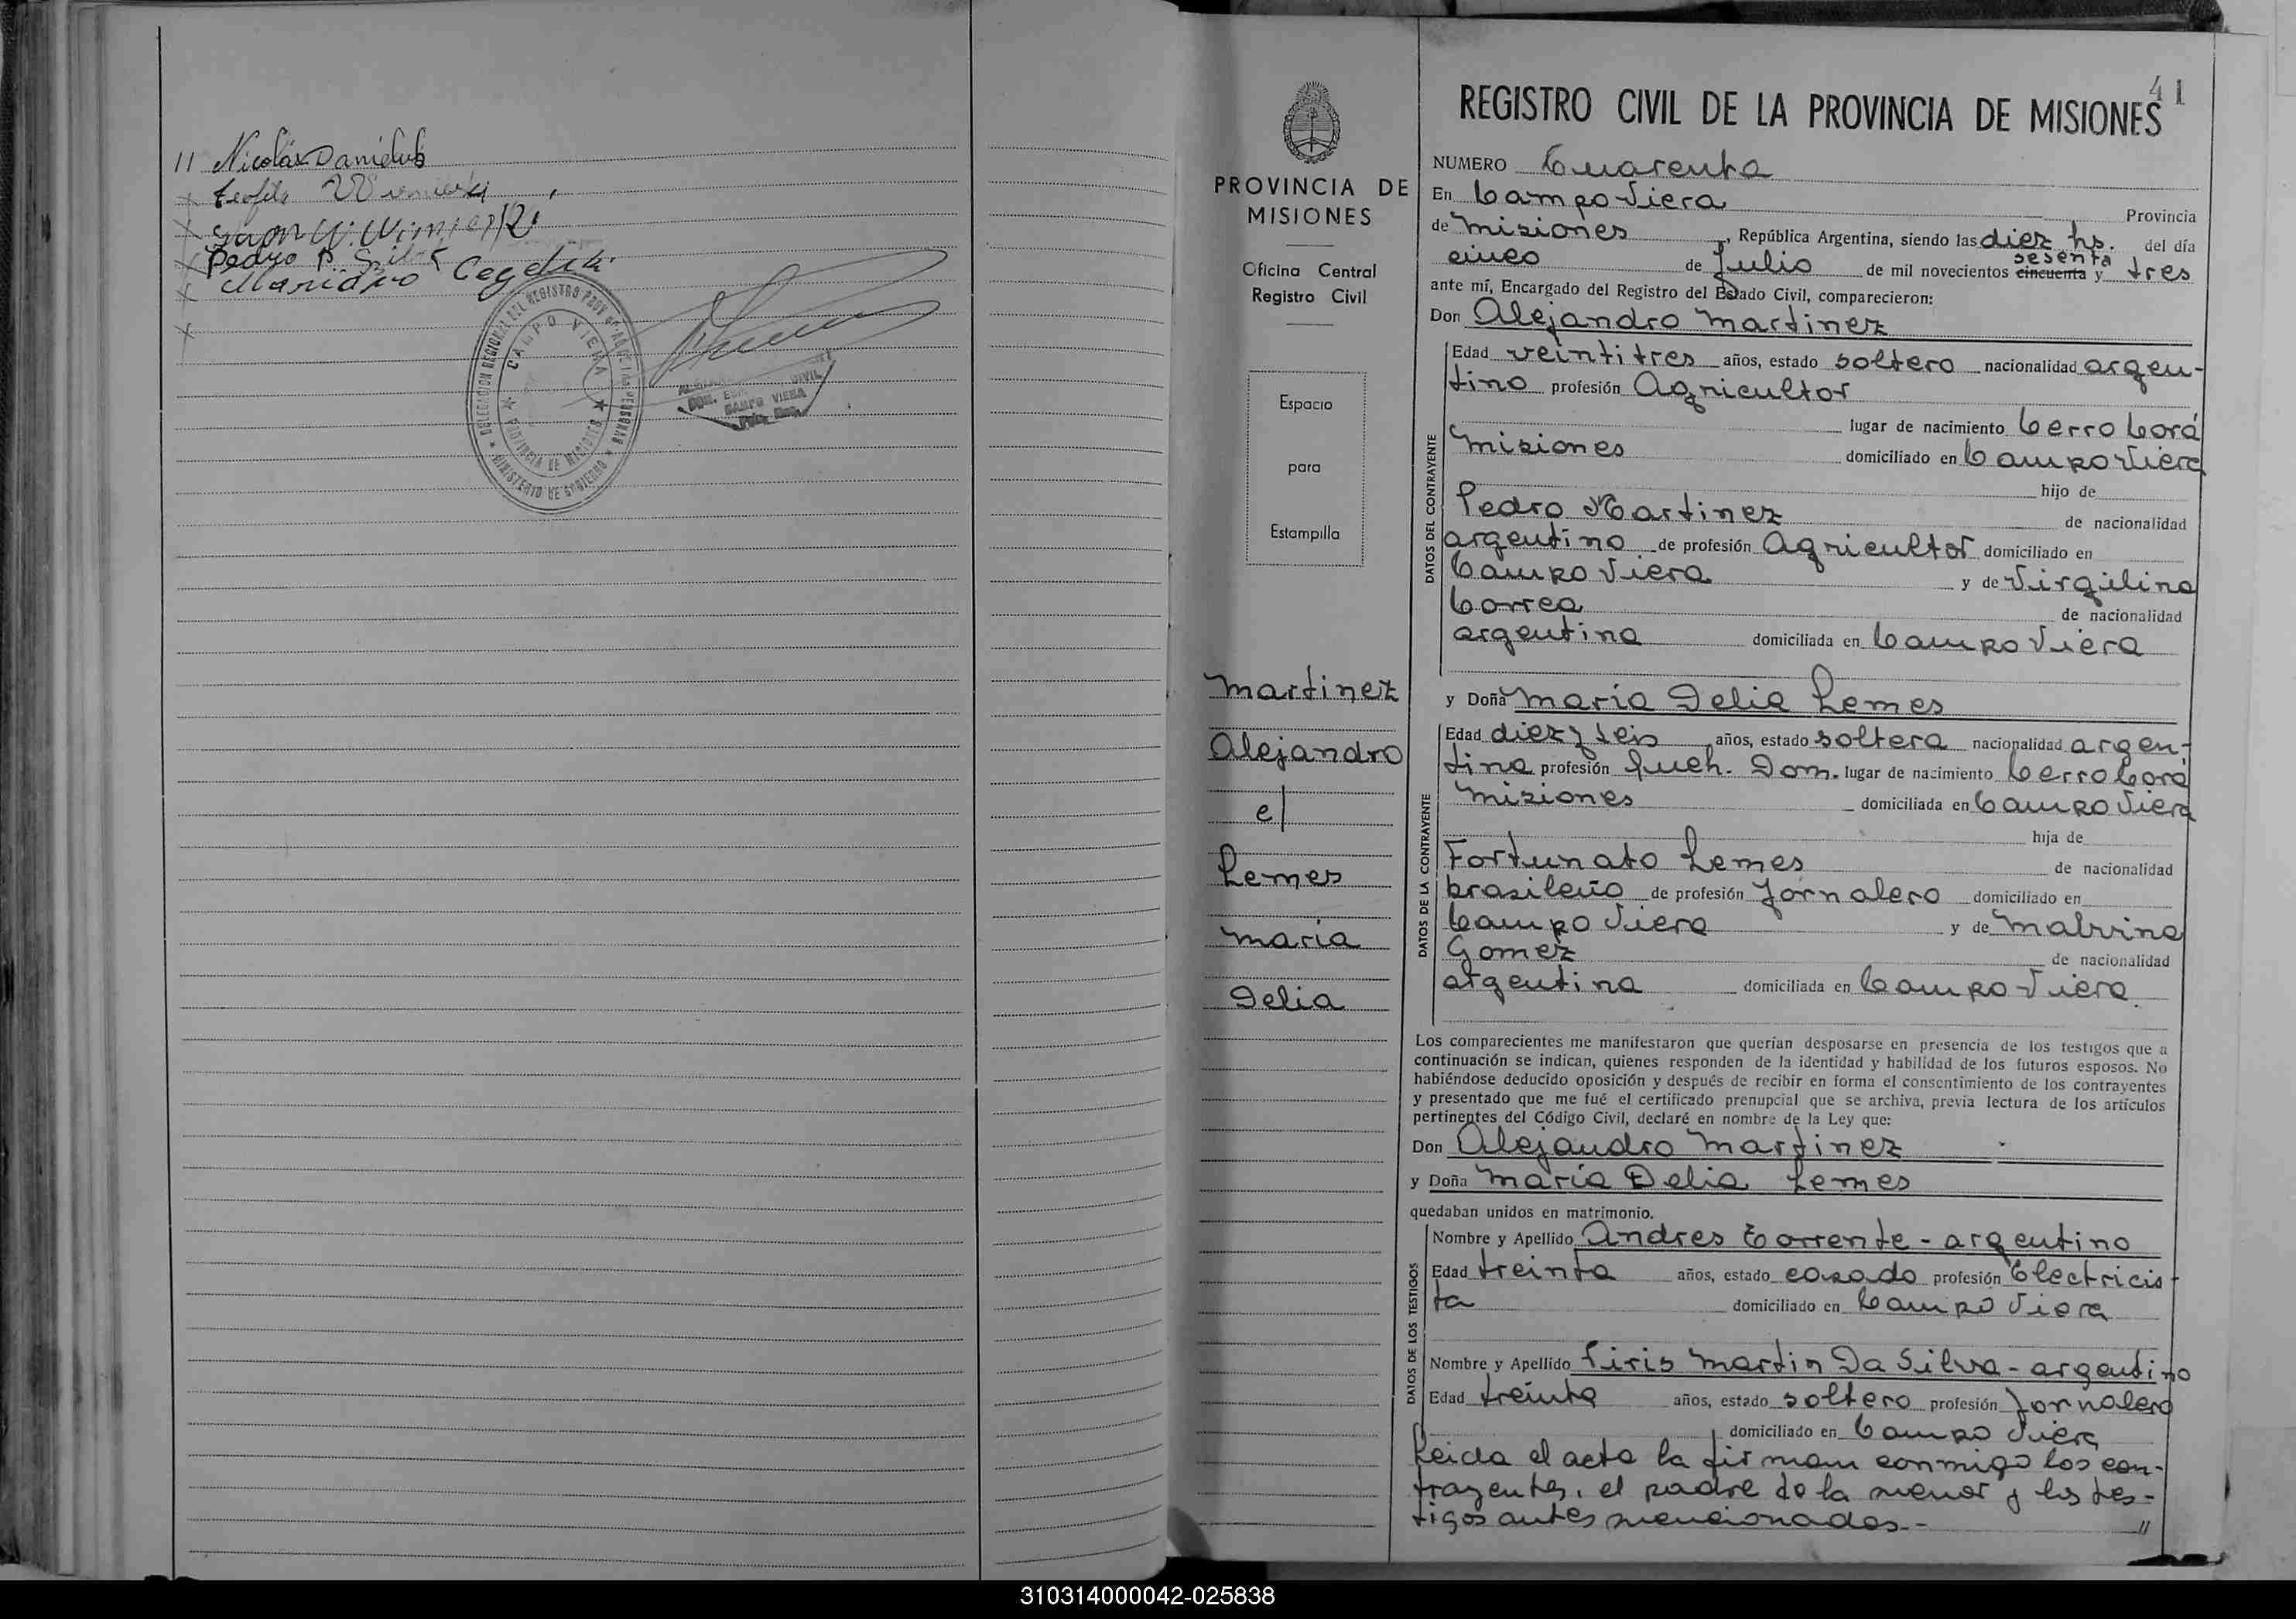 11 Nicolás Danieluk
Teofila
Pedro P. Silva
Mariano
DELEGACION REGIONAL DEL REGISTRO PROV. DE LAS PERSONAS
CAMPO VIERA
PROVINCIA DE MISIONES
MINISTERIO DE GOBIERNO
CIVIL
CAMPO VIERA
PROVINCIA DE
MISIONES
Oficina Central
Registro Civil
Espacio
para
Estampilla
Martinez
Alejandro
c/
Lemes
Maria
Delia
41
REGISTRO CIVIL DE LA PROVINCIA DE MISIONES
NUMERO Cuarenta
En Campo Viera Provincia
de Misiones, República Argentina, siendo las diez hs. del día
cinco de Julio de mil novecientos cincuenta sesenta y tres
ante mí, Encargado del Registro del Estado Civil, comparecieron:
Don Alejandro Martinez
DATOS DEL CONTRAYENTE
Edad veintitres años, estado soltero nacionalidad argen-
tino profesión Agricultor
lugar de nacimiento Cerro Corá
Misiones domiciliado en Campo Viera
hijo de
Pedro Martinez de nacionalidad
argentino de profesión Agricultor domiciliado en
Campo Viera y de Virgilina
Correa de nacionalidad
argentina domiciliada en Campo Viera
y Doña Maria Delia Lemes
DATOS DE LA CONTRAYENTE
Edad diez y seis años, estado soltera nacionalidad argen-
tina profesión Queh. Dom. lugar de nacimiento Cerro Corá
Misiones domiciliada en Campo Viera
hija de
Fortunato Lemes de nacionalidad
brasileño de profesión Jornalero domiciliado en
Campo Viera y de Malvina
Gomez de nacionalidad
argentina domiciliada en Campo Viera
Los comparecientes me manifestaron que querían desposarse en presencia de los testigos que a
continuación se indican, quienes responden de la identidad y habilidad de los futuros esposos. No
habiéndose deducido oposición y después de recibir en forma el consentimiento de los contrayentes
y presentado que me fué el certificado prenupcial que se archiva, previa lectura de los artículos
pertinentes del Código Civil, declaré en nombre de la Ley que:
Don Alejandro Martinez
y Doña María Delia Lemes
quedaban unidos en matrimonio.
DATOS DE LOS TESTIGOS
Nombre y Apellido Andres Torrente - argentino
Edad treinta años, estado casado profesión Electricis-
ta domiciliado en Campo Viera
Nombre y Apellido Piris Martin Da Silva - argentino
Edad treinta años, estado soltero profesión Jornalero
domiciliado en Campo Viera
Leida el acta la firman conmigo los con-
trayentes, el padre de la menor y los tes-
tigos antes mencionados.- //
310314000042-025838